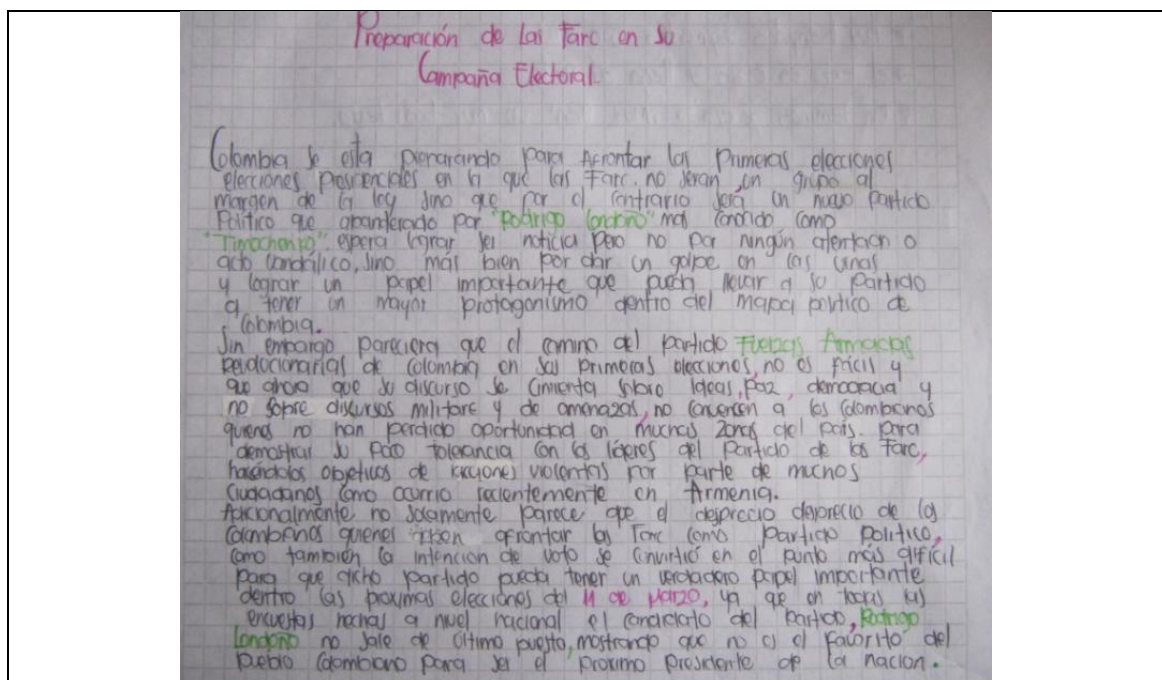 Preparación de las Farc en su
Campaña Electoral.
Colombia se esta preparando para Afrontar las Primeras elecciones
elecciones presidenciales en la que las Farc. no seran un grupo al
margen de la ley sino que por el contrario será un nuevo partido
Político que abanderado por "Rodrigo Londoño" mas conocido como
"Timochenko" espera lograr ser noticia pero no por ningún atentado o
acto vandálico, sino más bien por dar un golpe en las urnas
y lograr un papel importante que pueda llevar a su Partido
a tener un mayor protagonismo dentro del mapa político de
Colombia.
Sin embargo pareciera que el camino del partido Fuerzas Armadas
Revolucionarias de Colombia en sus primeras elecciones, no es fácil y
que ahora que su discurso se cimienta sobre Ideas, paz, democracia y
no sobre discursos militare y de amenazas, no convencen a los Colombianos
quienes no han perdido oportunidad en muchas zonas del país. para
demostrar su poco tolerancia con los líderes del Partido de las Farc,
haciéndolos objetivos de acciones violentas por parte de muchos
Ciudadanos como ocurrio recientemente en Armenia.
Adicionalmente no solamente parece que el desprecio desprecio de los
Colombianos quienes afrontar las Farc como Partido político,
como también la intencion de voto se convirtió en el punto más difícil
para que dicho partido pueda tener un verdadero papel importante
dentro las proximas elecciones del 11 de Marzo, ya que en todas las
encuestas hechas a nivel nacional el candidato del partido, Rodrigo
Londoño no sale de último puesto, mostrando que no es el favorito del
pueblo Colombiano para ser el proximo presidente de la nacion.